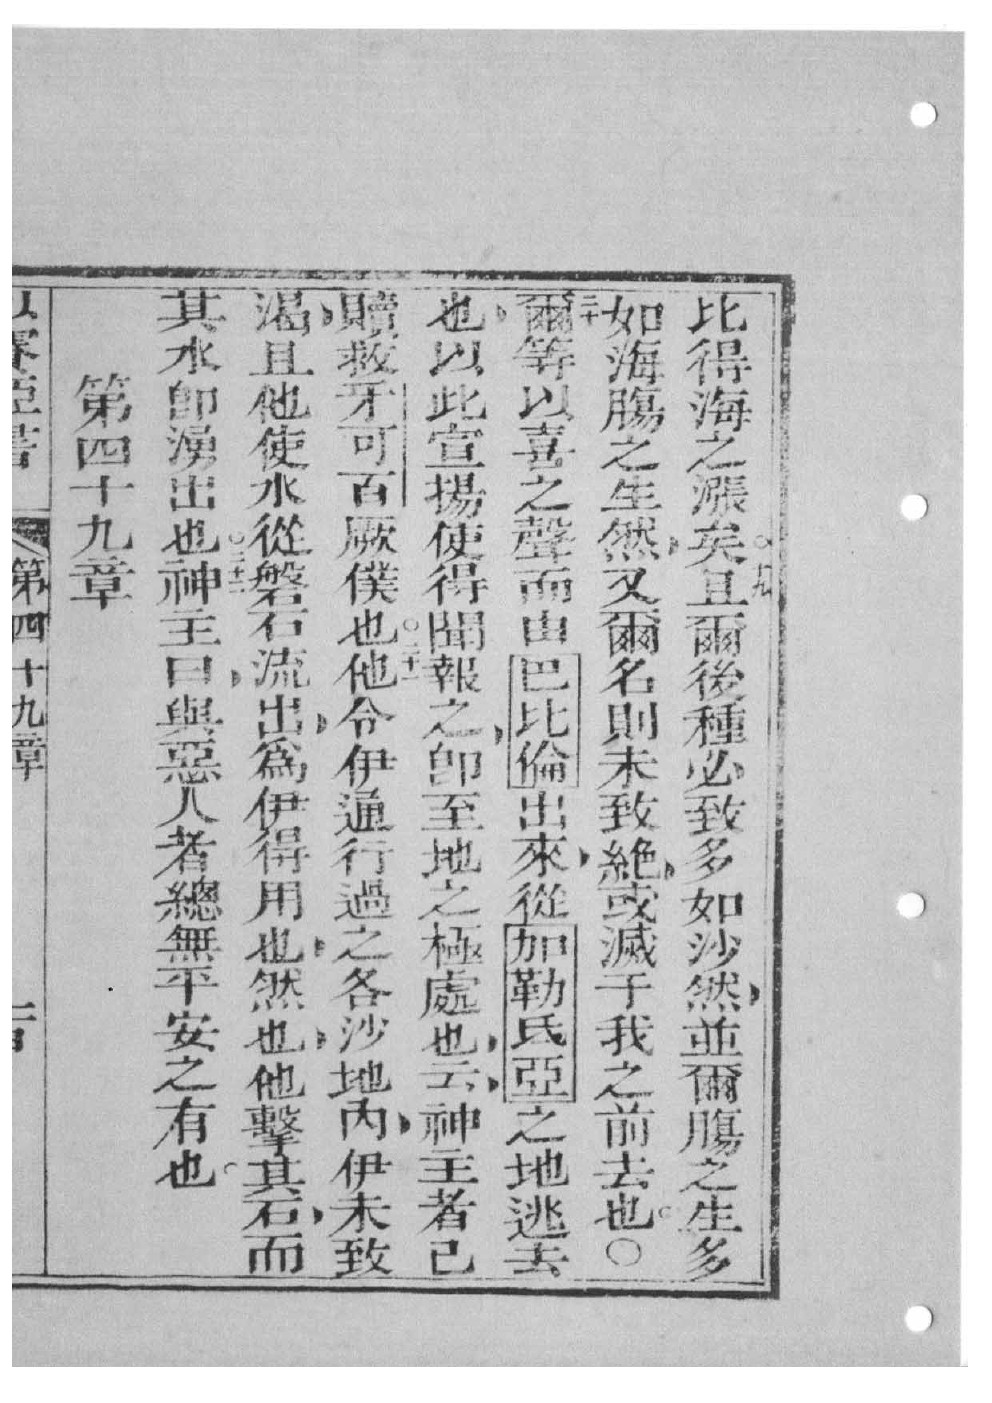 比得海之漲矣○十九且爾後種必致多如沙然並爾膓之生多
如海膓之生然又爾名則未致絶或滅于我之前去也○
二十爾等以喜之聲而由巴比倫出來從加勒氏亞之地逃去
也以此宣揚使得聞報之卽至地之極處也云神主者已
贖救牙可百厥僕也○二十一他令伊通行過之各沙地內伊未致
渴且他使水從磐石流出爲伊得用也然也他擊其石而
其水卽湧出也○二十二神主曰與惡人者總無平安之有也
第四十九章
以賽亞書 第四十九章